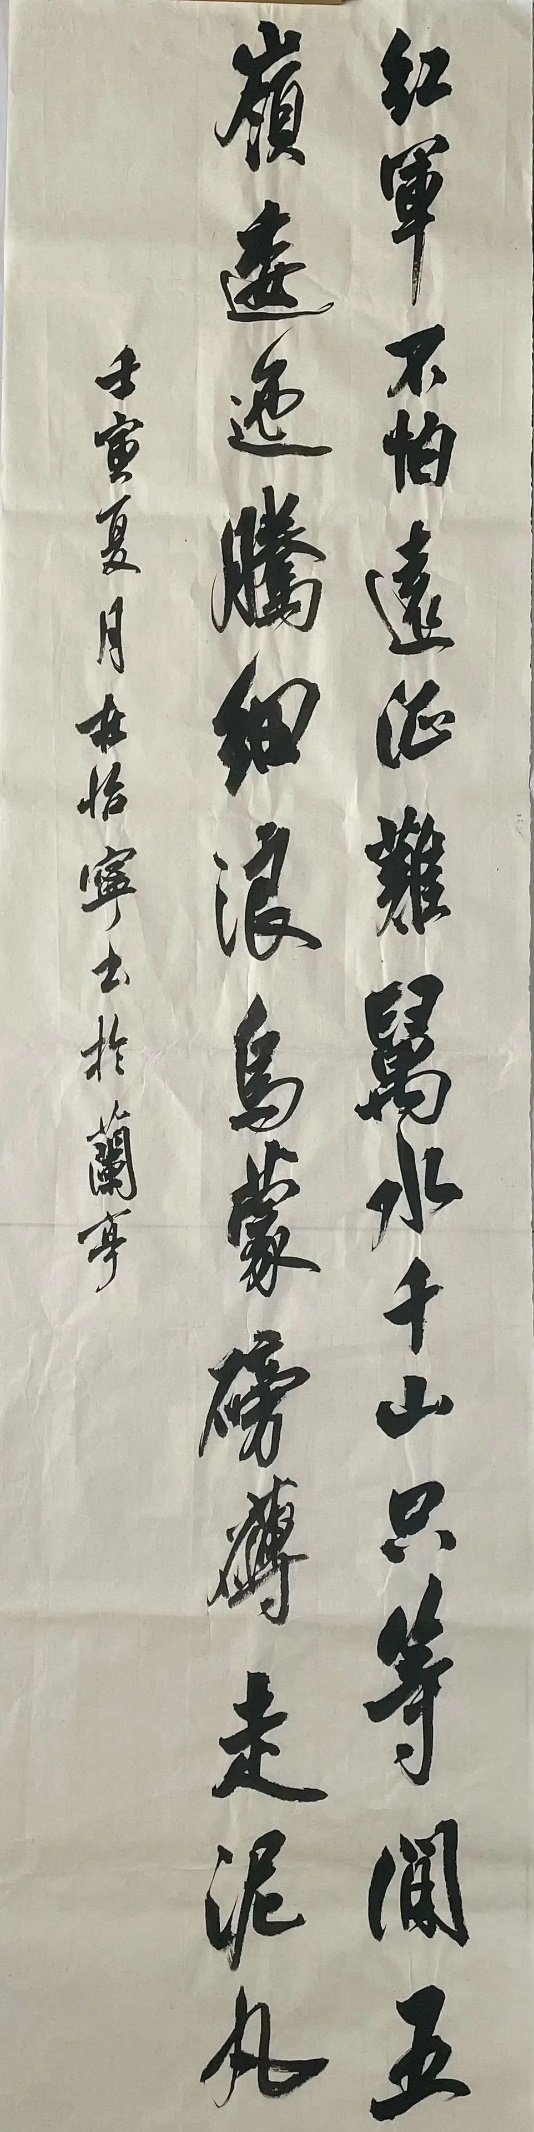 红軍不怕遠征難萬水千山只等閒五
嶺逶迤騰細浪烏蒙磅礴走泥丸
壬寅夏月林怡寧书於蘭亭